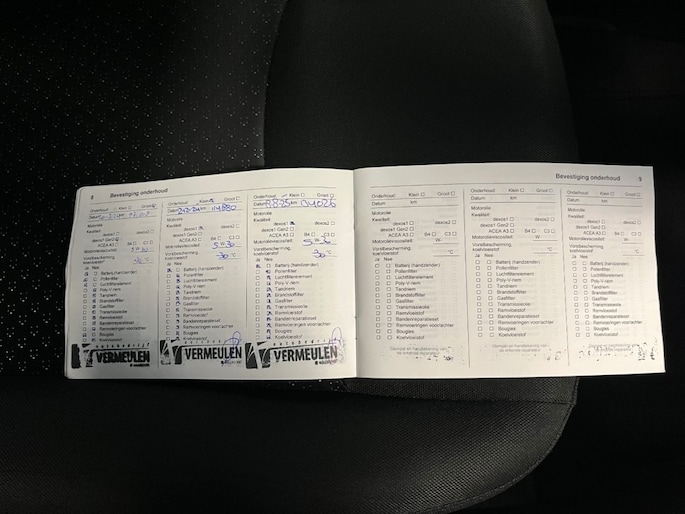 8 Bevestiging onderhoud
Onderhoud: Klein Groot
Datum km
Motorolie
Kwaliteit:
dexos1 dexos2
dexos1 Gen2
ACEA A3 B4 C3
Motorolieviscositeit 5 W 30
Vorstbescherming,
koelvloeistof °C
Ja Nee
Batterij (handzender)
Pollenfilter
Luchtfilterelement
Poly-V-riem
Tandriem
Brandstoffilter
Gasfilter
Transmissieolie
Remvloeistof
Bandenreparatieset
Remvoeringen voor/achter
Bougies
Koelvloeistof
VERMEULEN
Onderhoud: Klein Groot
Datum km 114880
Motorolie
Kwaliteit:
dexos1 dexos2
dexos1 Gen2
ACEA A3 B4 C3
Motorolieviscositeit 5 W 30
Vorstbescherming,
koelvloeistof 30 °C
Ja Nee
Batterij (handzender)
Pollenfilter
Luchtfilterelement
Poly-V-riem
Tandriem
Brandstoffilter
Gasfilter
Transmissieolie
Remvloeistof
Bandenreparatieset
Remvoeringen voor/achter
Bougies
Koelvloeistof
VERMEULEN
Onderhoud: Klein Groot
Datum 8.8.25 km
Motorolie
Kwaliteit:
dexos1 dexos2
dexos1 Gen2
ACEA A3 B4 C3
Motorolieviscositeit 5 W 30
Vorstbescherming,
koelvloeistof 30 °C
Ja Nee
Batterij (handzender)
Pollenfilter
Luchtfilterelement
Poly-V-riem
Tandriem
Brandstoffilter
Gasfilter
Transmissieolie
Remvloeistof
Bandenreparatieset
Remvoeringen voor/achter
Bougies
Koelvloeistof
VERMEULEN
Bevestiging onderhoud 9
Onderhoud: Klein Groot
Datum km
Motorolie
Kwaliteit:
dexos1 dexos2
dexos1 Gen2
ACEA A3 B4 C3
Motorolieviscositeit W-
Vorstbescherming,
koelvloeistof °C
Ja Nee
Batterij (handzender)
Pollenfilter
Luchtfilterelement
Poly-V-riem
Tandriem
Brandstoffilter
Gasfilter
Transmissieolie
Remvloeistof
Bandenreparatieset
Remvoeringen voor/achter
Bougies
Koelvloeistof
Stempel en handtekening van
de erkende reparateur
Onderhoud: Klein Groot
Datum km
Motorolie
Kwaliteit:
dexos1 dexos2
dexos1 Gen2
ACEA A3 B4 C3
Motorolieviscositeit W-
Vorstbescherming,
koelvloeistof °C
Ja Nee
Batterij (handzender)
Pollenfilter
Luchtfilterelement
Poly-V-riem
Tandriem
Brandstoffilter
Gasfilter
Transmissieolie
Remvloeistof
Bandenreparatieset
Remvoeringen voor/achter
Bougies
Koelvloeistof
Stempel en handtekening van
de erkende reparateur
Onderhoud: Klein Groot
Datum km
Motorolie
Kwaliteit:
dexos1 dexos2
dexos1 Gen2
ACEA A3 B4 C3
Motorolieviscositeit W-
Vorstbescherming,
koelvloeistof °C
Ja Nee
Batterij (handzender)
Pollenfilter
Luchtfilterelement
Poly-V-riem
Tandriem
Brandstoffilter
Gasfilter
Transmissieolie
Remvloeistof
Bandenreparatieset
Remvoeringen voor/achter
Bougies
Koelvloeistof
Stempel en handtekening van
de erkende reparateur